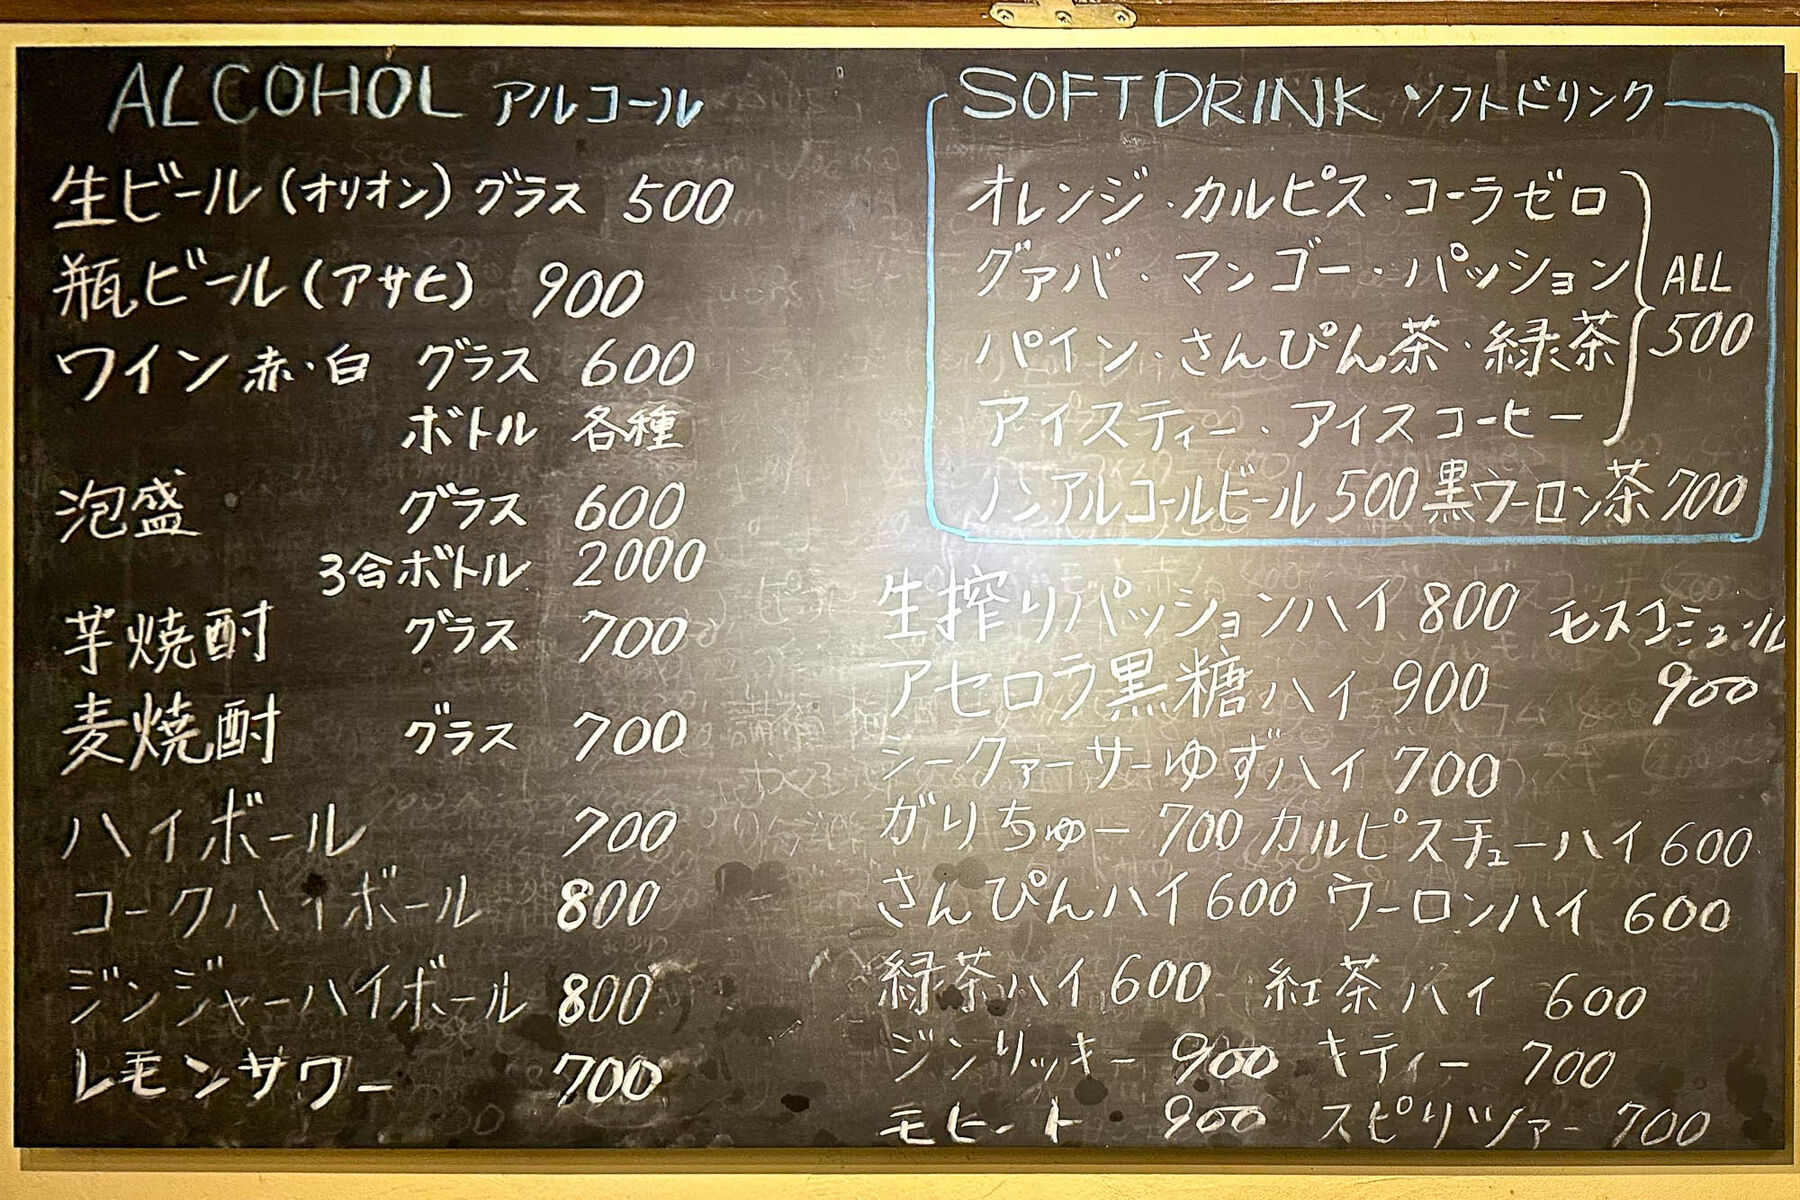 ALCOHOL アルコール
生ビール(オリオン) グラス 500
瓶ビール(アサヒ) 900
ワイン 赤・白 グラス 600
ボトル 各種
泡盛 グラス 600
3合ボトル 2000
芋焼酎 グラス 700
麦焼酎 グラス 700
ハイボール 700
コークハイボール 800
ジンジャーハイボール 800
レモンサワー 700
SOFTDRINK ソフトドリンク
オレンジ・カルピス・コーラゼロ
グァバ・マンゴー・パッション
パイン・さんぴん茶・緑茶
アイスティー・アイスコーヒー
ALL
500
ノンアルコールビール 500 黒ウーロン茶 700
生搾りパッションハイ 800
アセロラ黒糖ハイ 900
モスコミュール
900
シークァーサーゆずハイ 700
がりちゅー 700 カルピスチューハイ 600
さんぴんハイ 600 ウーロンハイ 600
緑茶ハイ 600 紅茶ハイ 600
ジンリッキー 900 キティー 700
モヒート 900 スピリツァー 700